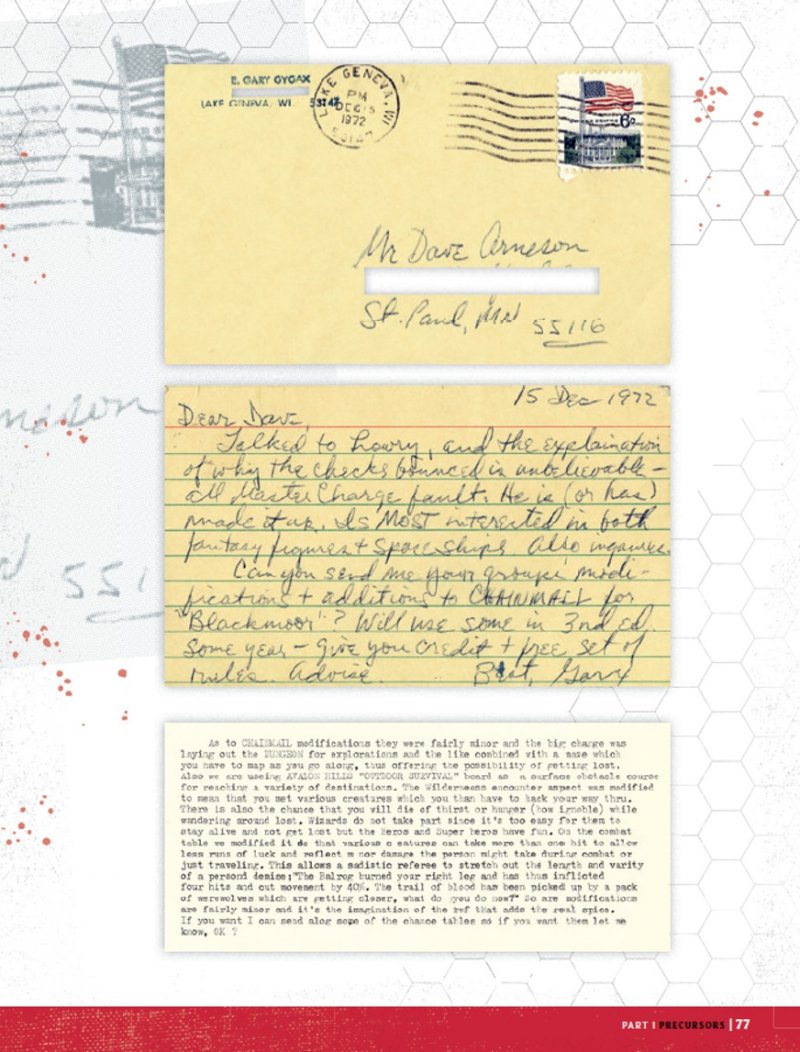 E. GARY GYGAX
LAKE GENEVA, WI. 53147
LAKE GENEVA, WI
PM
DEC 15
1972
53147
6c
Mr Dave Arneson
St. Paul, MN 55116
15 Dec 1972
Dear Dave,
Talked to Lowry, and the explaination
of why the checks bounced is unbelievable –
all Master Charge fault. He is (or has)
made it up. Is MOST interested in both
fantasy figures + Space Ships. Also inquiries.
Can you send me your groups modi-
fications + additions to CHAINMAIL for
"Blackmoor"? Will use some in 3nd ed.
some year – give you credit + free set of
rules. Advise. Best, Gary
As to CHAINMAIL modifications they were fairly minor and the big change was
laying out the DUNGEON for explorations and the like combined with a maze which
you have to map as you go along, thus offering the possibility of getting lost.
Also we are useing AVALON HILLS "OUTDOOR SURVIVAL" board as a surface obstacle course
for reaching a variety of destinations. The Wilderness encounter aspect was modified
to mean that you met various creatures which you than have to hack your way thru.
There is also the chance that you will die of thirst or hunger (how ignoble) while
wandering around lost. Wizards do not take part since it's too easy for them to
stay alive and not get lost but the Heros and Super heros have fun. On the combat
table we modified it do that various c eatures can take more than one hit to allow
less runs of luck and reflect m nor damage the person might take during combat or
just traveling. This allows a sadistic referee to stretch out the length and varity
of a persons demise;"The Balrog burned your right leg and has thus inflicted
four hits and cut movement by 40%. The trail of blood has been picked up by a pack
of werewolves which are getting closer, what do you do now?" So are modifications
are fairly minor and it's the imagination of the ref that adds the real spice.
If you want I can send alog some of the chance tables so if you want them let me
know, OK ?
PART I PRECURSORS | 77